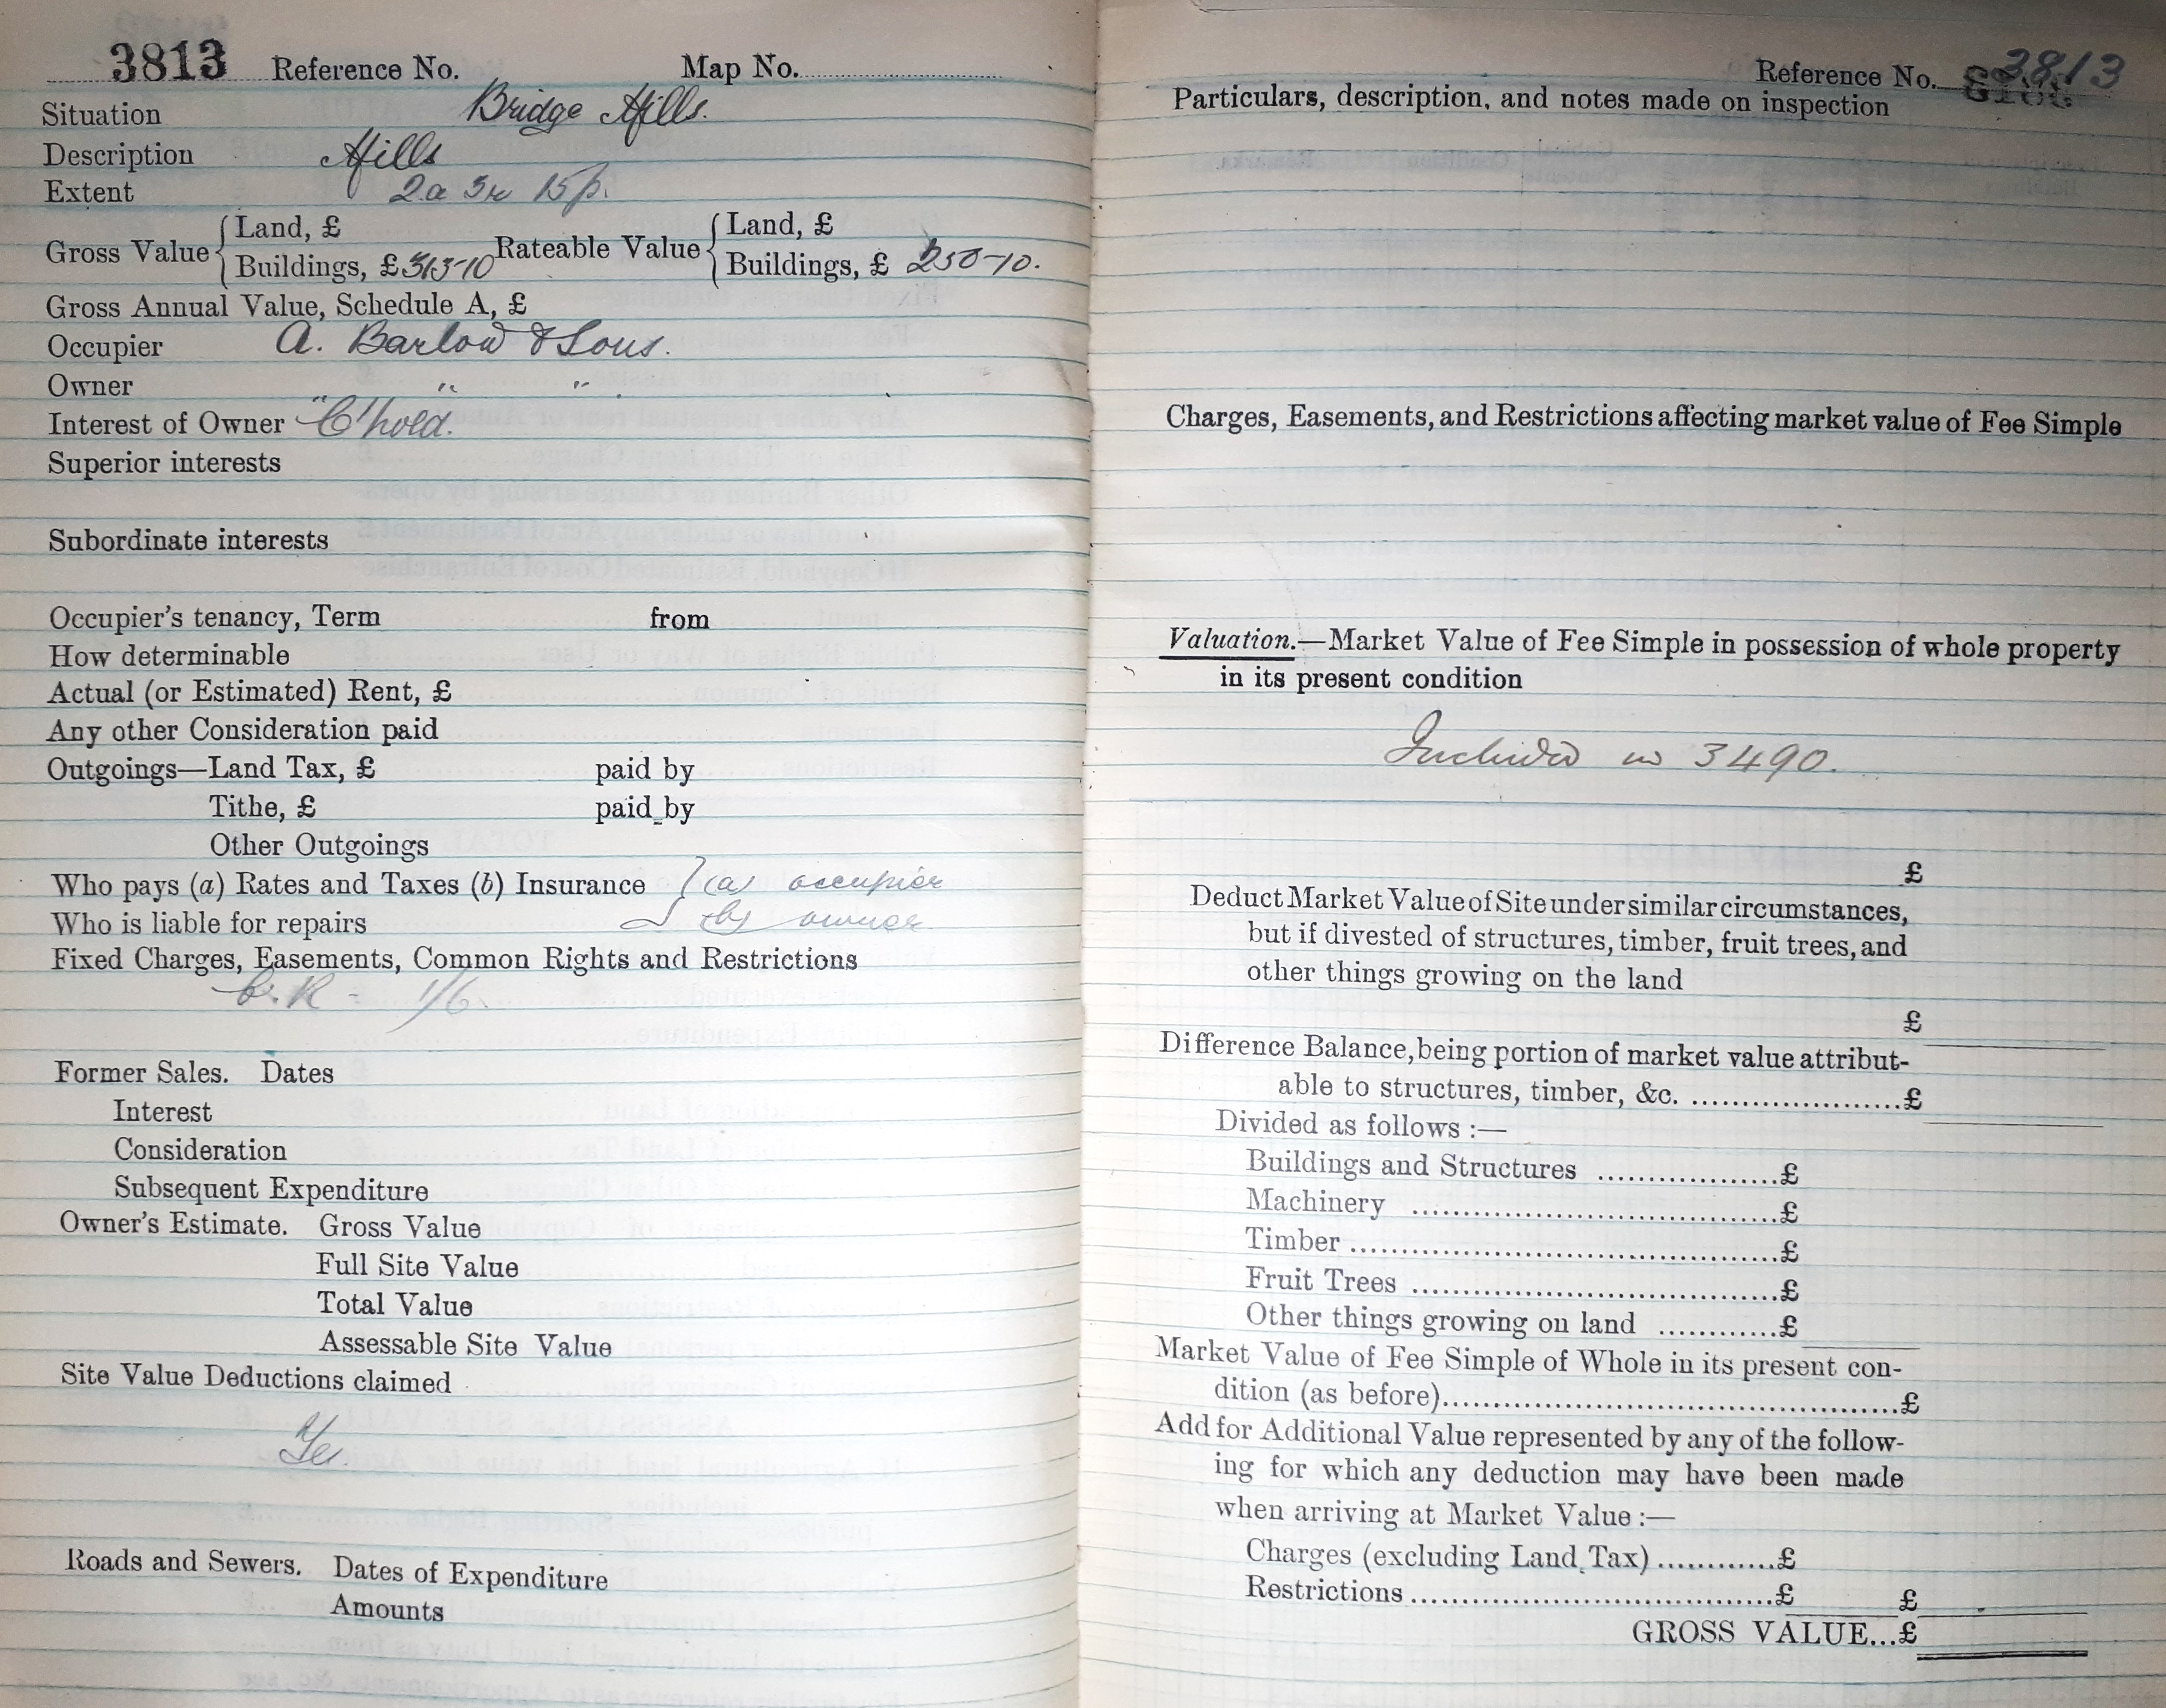 3813 Reference No. Map No.
Situation Bridge Mills.
Description Mills
Extent 2a 3r 15p.
Gross Value { Land, £ Rateable Value { Land, £
Buildings, £ 313-10 Buildings, £ 250-10.
Gross Annual Value, Schedule A, £
Occupier A. Barlow & Sons.
Owner " "
Interest of Owner "C'hold.
Superior interests
Subordinate interests
Occupier's tenancy, Term from
How determinable
Actual (or Estimated) Rent, £
Any other Consideration paid
Outgoings—Land Tax, £ paid by
Tithe, £ paid by
Other Outgoings
Who pays (a) Rates and Taxes (b) Insurance } (a) occupier
Who is liable for repairs } (b) owner
Fixed Charges, Easements, Common Rights and Restrictions
C.R - 1/6.
Former Sales. Dates
Interest
Consideration
Subsequent Expenditure
Owner's Estimate. Gross Value
Full Site Value
Total Value
Assessable Site Value
Site Value Deductions claimed
Roads and Sewers. Dates of Expenditure
Amounts
Reference No. 3813
Particulars, description, and notes made on inspection
Charges, Easements, and Restrictions affecting market value of Fee Simple
Valuation.—Market Value of Fee Simple in possession of whole property
in its present condition
Included in 3490.
£
Deduct Market Value of Site under similar circumstances,
but if divested of structures, timber, fruit trees, and
other things growing on the land
£
Difference Balance, being portion of market value attribut-
able to structures, timber, &c. ......................£
Divided as follows :—
Buildings and Structures ..................£
Machinery .....................................£
Timber ...........................................£
Fruit Trees .....................................£
Other things growing on land ............£
Market Value of Fee Simple of Whole in its present con-
dition (as before)..............................................£
Add for Additional Value represented by any of the follow-
ing for which any deduction may have been made
when arriving at Market Value :—
Charges (excluding Land Tax) ............£
Restrictions .....................................£ £
GROSS VALUE...£